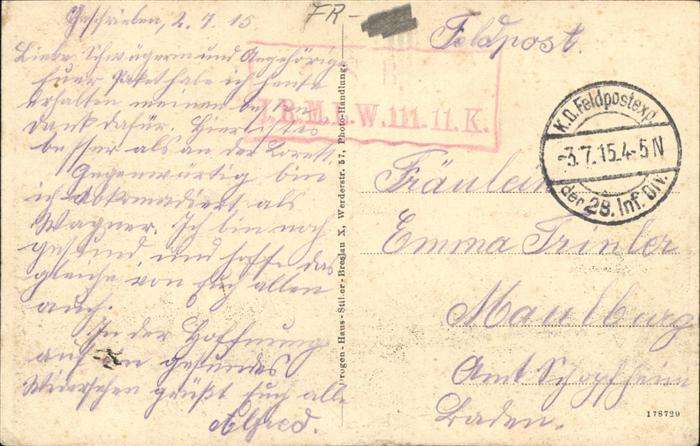 Geschrieben, 2.7.15
Liebe Schwägerin und Angehörige
Euer Paket habe ich heute
erhalten meinen besten
Dank dafür. Hier ist es
besser als an der Lorett.
Gegenwärtig bin
ich abkomadiert als
Wagner. Ich bin noch
gesund und hoffe das
gleiche von Euch allen
auch.
In der Hoffnung
auf ein gesundes
Wiedersehen grüßt Euch alle
Alfred.
FR-
Drogen-Haus-Stiller-Breslau X, Werderstr. 57, Photo-Handlung.
Feldpost.
.R.M.I.W.111.11.K.
K.D. Feldpostexp.
-3.7.15.4-5N
der 28. Inf. Div.
Fräulein
Emma Trinler
Maulburg
Amt Schopfheim
Baden.
178729